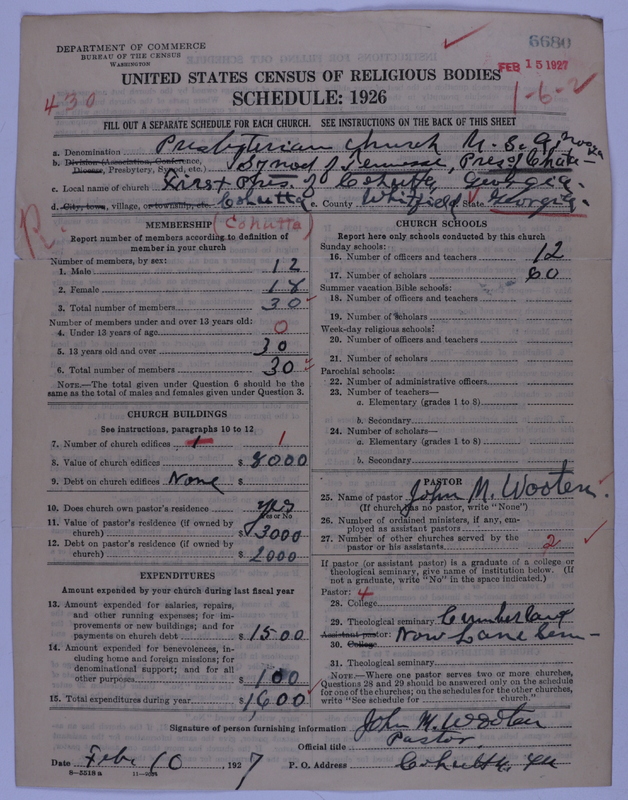 DEPARTMENT OF COMMERCE
BUREAU OF THE CENSUS
WASHINGTON
6680
FEB 15 1927
UNITED STATES CENSUS OF RELIGIOUS BODIES
SCHEDULE: 1926
430
1-6-2
FILL OUT A SEPARATE SCHEDULE FOR EACH CHURCH. SEE INSTRUCTIONS ON THE BACK OF THIS SHEET
a. Denomination Presbyterian Church U.S.A.
b. Division (Association, Conference, Diocese, Presbytery, Synod, etc.) Synod of Tennessee, Pres of Chatta-nooga
c. Local name of church First Pres. of Cohutta, Georgia.
d. City, town, village, or township, etc. Cohutta e. County Whitfield State Georgia
R.
MEMBERSHIP (Cohutta)
Report number of members according to definition of
member in your church
Number of members, by sex:
1. Male 12
2. Female 18
3. Total number of members 30
Number of members under and over 13 years old:
4. Under 13 years of age 0
5. 13 years old and over 30
6. Total number of members 30
NOTE.—The total given under Question 6 should be the
same as the total of males and females given under Question 3.
CHURCH BUILDINGS
See instructions, paragraphs 10 to 12
7. Number of church edifices 1 1
8. Value of church edifices $ 8000
9. Debt on church edifices None $
10. Does church own pastor's residence yes
Yes or No
11. Value of pastor's residence (if owned by
church) $ 3000
12. Debt on pastor's residence (if owned by
church) $ 2000
EXPENDITURES
Amount expended by your church during last fiscal year
13. Amount expended for salaries, repairs,
and other running expenses; for im-
provements or new buildings; and for
payments on church debt $ 1500
14. Amount expended for benevolences, in-
cluding home and foreign missions; for
denominational support; and for all
other purposes $ 100
15. Total expenditures during year $ 1600
CHURCH SCHOOLS
Report here only schools conducted by this church
Sunday schools:
16. Number of officers and teachers 12
17. Number of scholars 60
Summer vacation Bible schools:
18. Number of officers and teachers
19. Number of scholars
Week-day religious schools:
20. Number of officers and teachers
21. Number of scholars
Parochial schools:
22. Number of administrative officers
23. Number of teachers—
a. Elementary (grades 1 to 8)
b. Secondary
24. Number of scholars—
a. Elementary (grades 1 to 8)
b. Secondary
PASTOR
25. Name of pastor John M. Wooten
(If church has no pastor, write "None")
26. Number of ordained ministers, if any, em-
ployed as assistant pastors
27. Number of other churches served by the
pastor or his assistants 2
If pastor (or assistant pastor) is a graduate of a college or
theological seminary, give name of institution below. (If
not a graduate, write "No" in the space indicated.)
Pastor: 4
28. College
29. Theological seminary Cumberland
Assistant pastor: Now Lane Sem-
30. College
31. Theological seminary
NOTE.—Where one pastor serves two or more churches,
Questions 28 and 29 should be answered only on the schedule
for one of the churches; on the schedules for the other churches,
write "See schedule for church."
Signature of person furnishing information John M. Wooten
Official title Pastor
Date Feb. 10, 1927 P. O. Address Cohutta,
8-5518 a